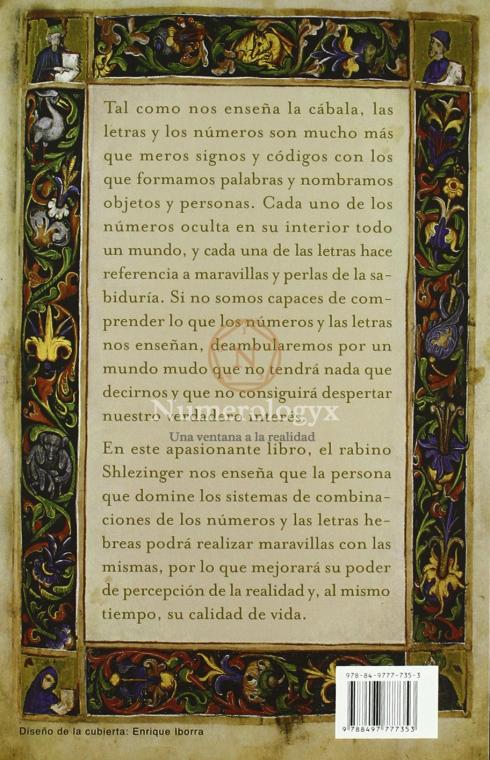 Tal como nos enseña la cábala, las
letras y los números son mucho más
que meros signos y códigos con los
que formamos palabras y nombramos
objetos y personas. Cada uno de los
números oculta en su interior todo
un mundo, y cada una de las letras hace
referencia a maravillas y perlas de la sa-
biduría. Si no somos capaces de com-
prender lo que los números y las letras
nos enseñan, deambularemos por un
mundo mudo que no tendrá nada que
decirnos y que no conseguirá despertar
nuestro verdadero interés.
Numerologyx
Una ventana a la realidad
En este apasionante libro, el rabino
Shlezinger nos enseña que la persona
que domine los sistemas de combina-
ciones de los números y las letras he-
breas podrá realizar maravillas con las
mismas, por lo que mejorará su poder
de percepción de la realidad y, al mismo
tiempo, su calidad de vida.
978-84-9777-735-3
9 788497 777353
Diseño de la cubierta: Enrique Iborra